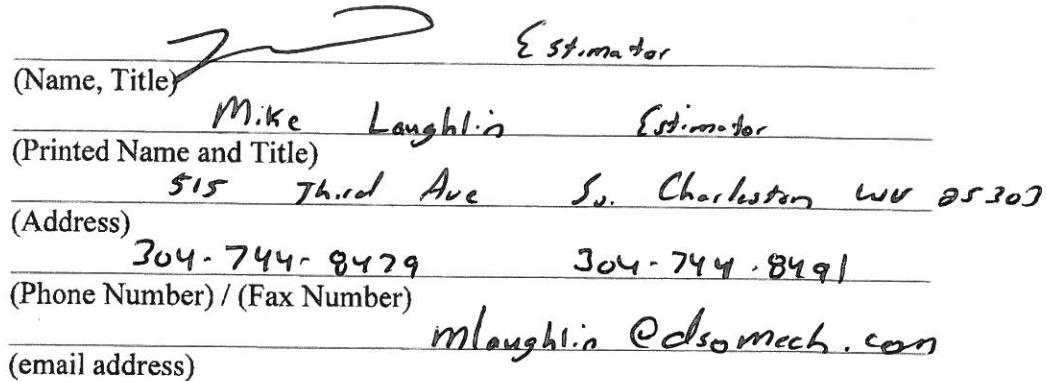 Estimator
(Name, Title)
Mike Laughlin Estimator
(Printed Name and Title)
515 Third Ave So. Charleston WV 25303
(Address)
304-744-8479 304-744-8491
(Phone Number) / (Fax Number)
mlaughlin@dsomech.com
(email address)